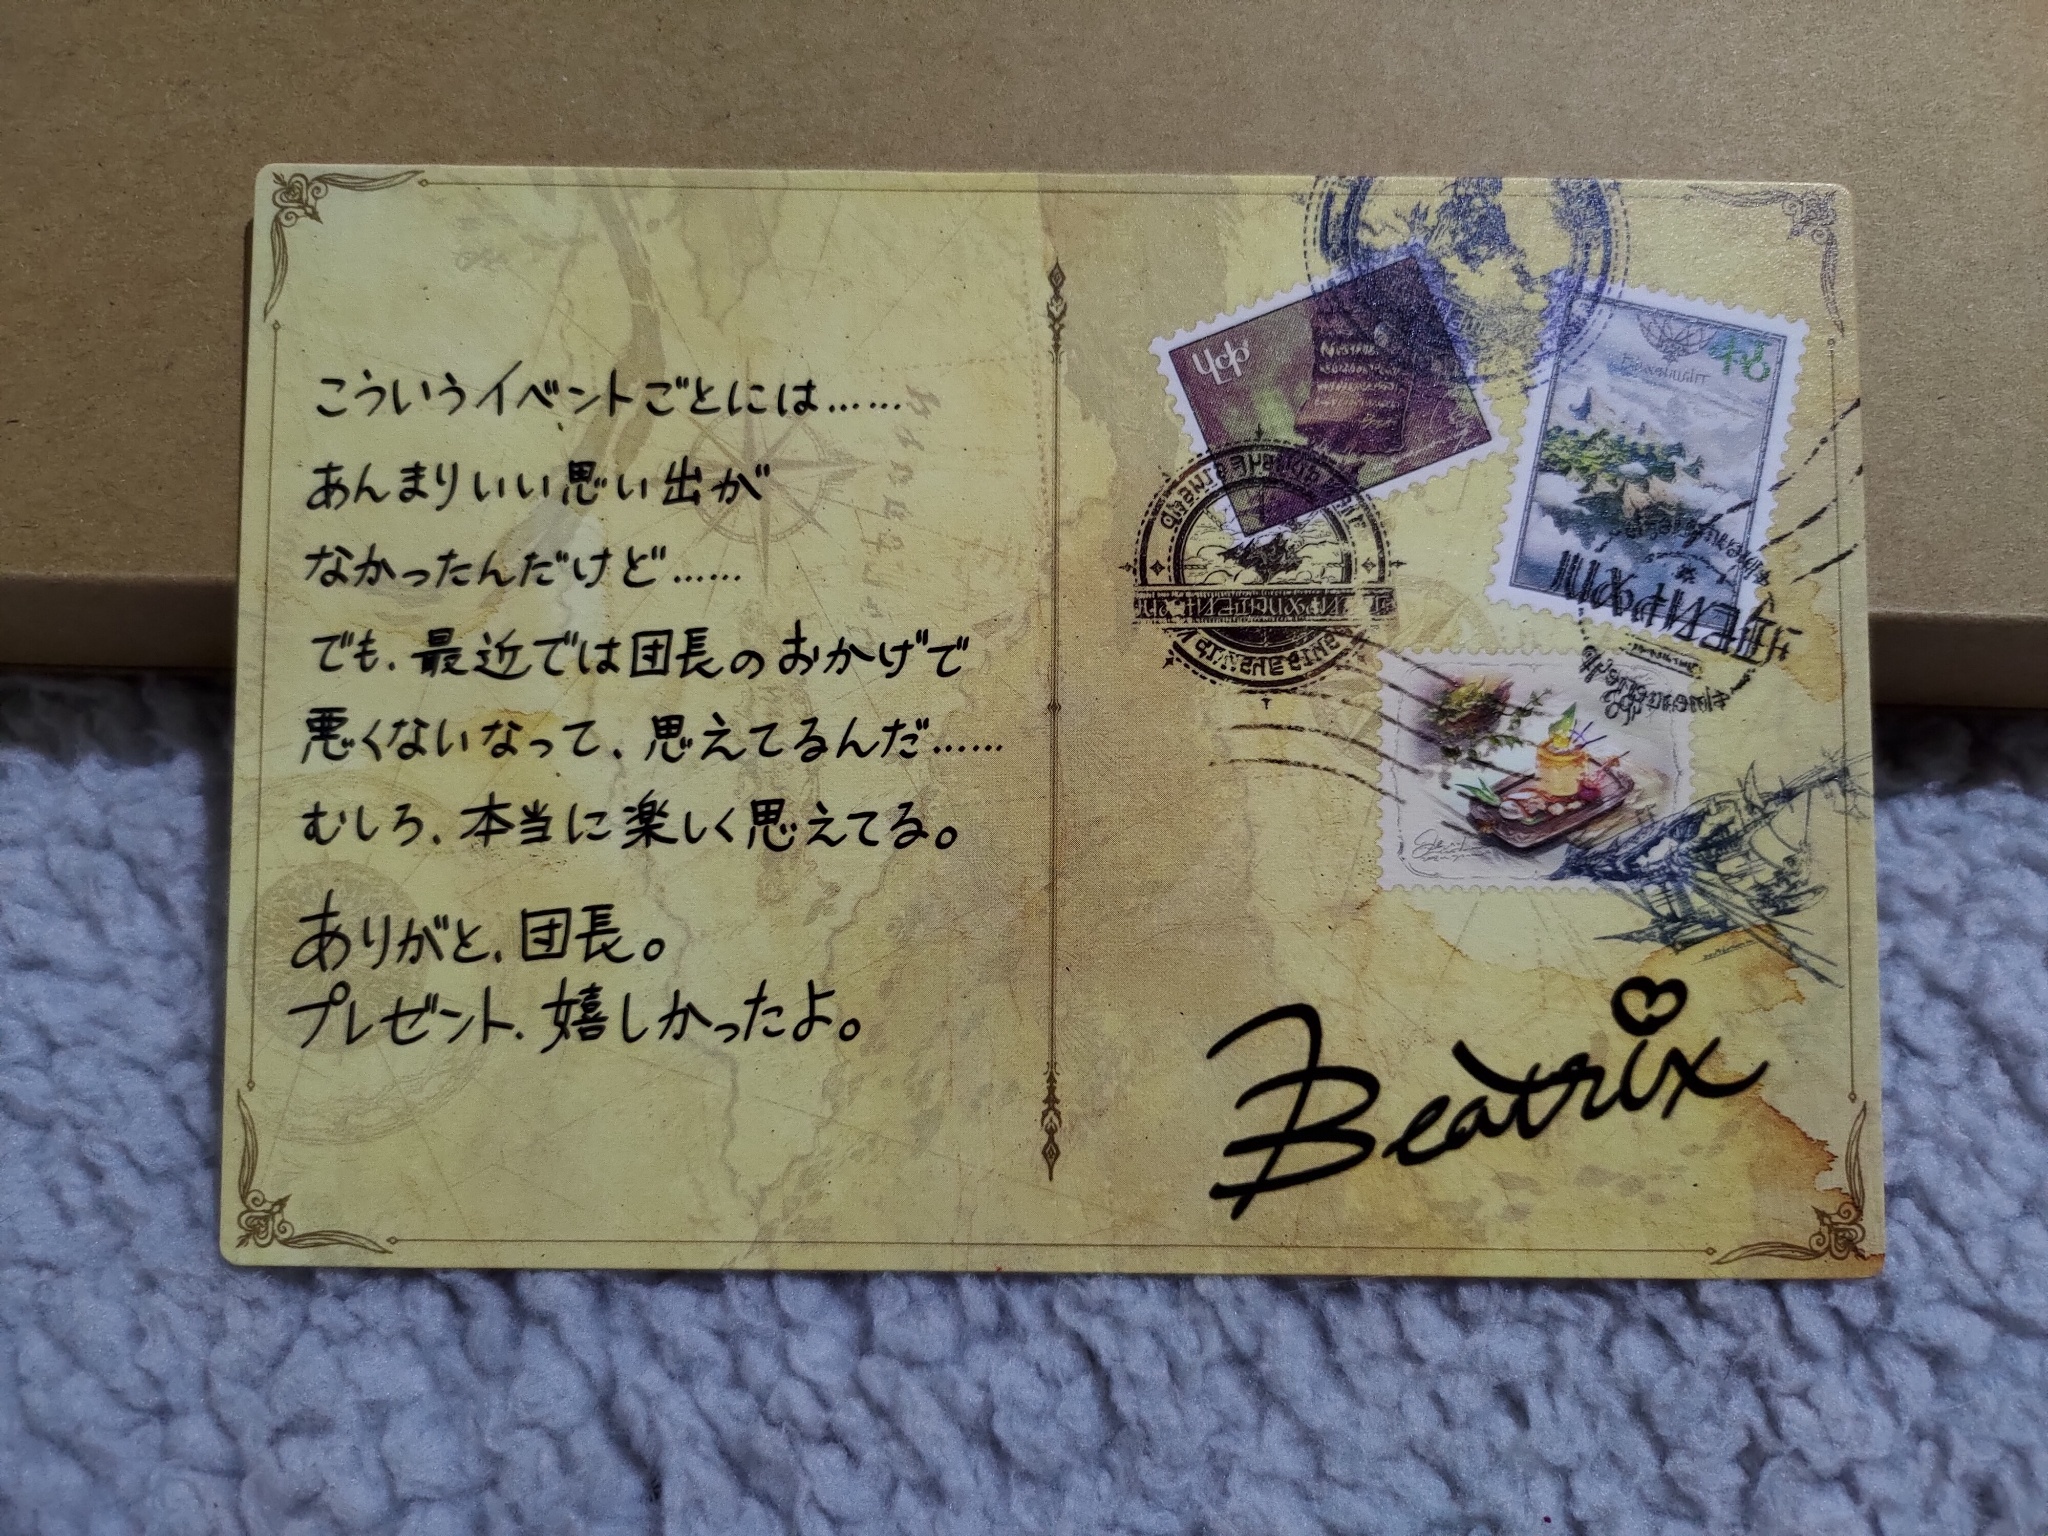 こういうイベントごとには……
あんまりいい思い出が
なかったんだけど……
でも、最近では団長のおかげで
悪くないなって、思えてるんだ……
むしろ、本当に楽しく思えてる。
ありがと、団長。
プレゼント、嬉しかったよ。
Beatrix